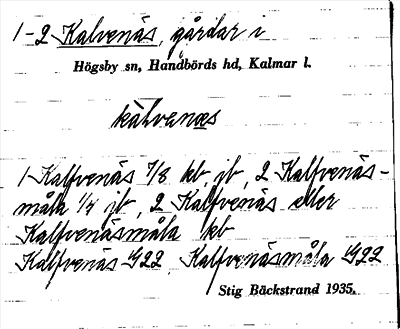 1-2 Kalvenäs, gårdar i
Högsby sn, Handbörds hd, Kalmar l.
kàlvenæs
1 Kalfvenäs 7/8 kb, jb, 2 Kalfvenäs-
måla 1/4 jb, 2 Kalfvenäs eller
Kalfvenäsmåla kb
Kalfvenäs G22 Kalfvenäsmåla G22
Stig Bäckstrand 1935.